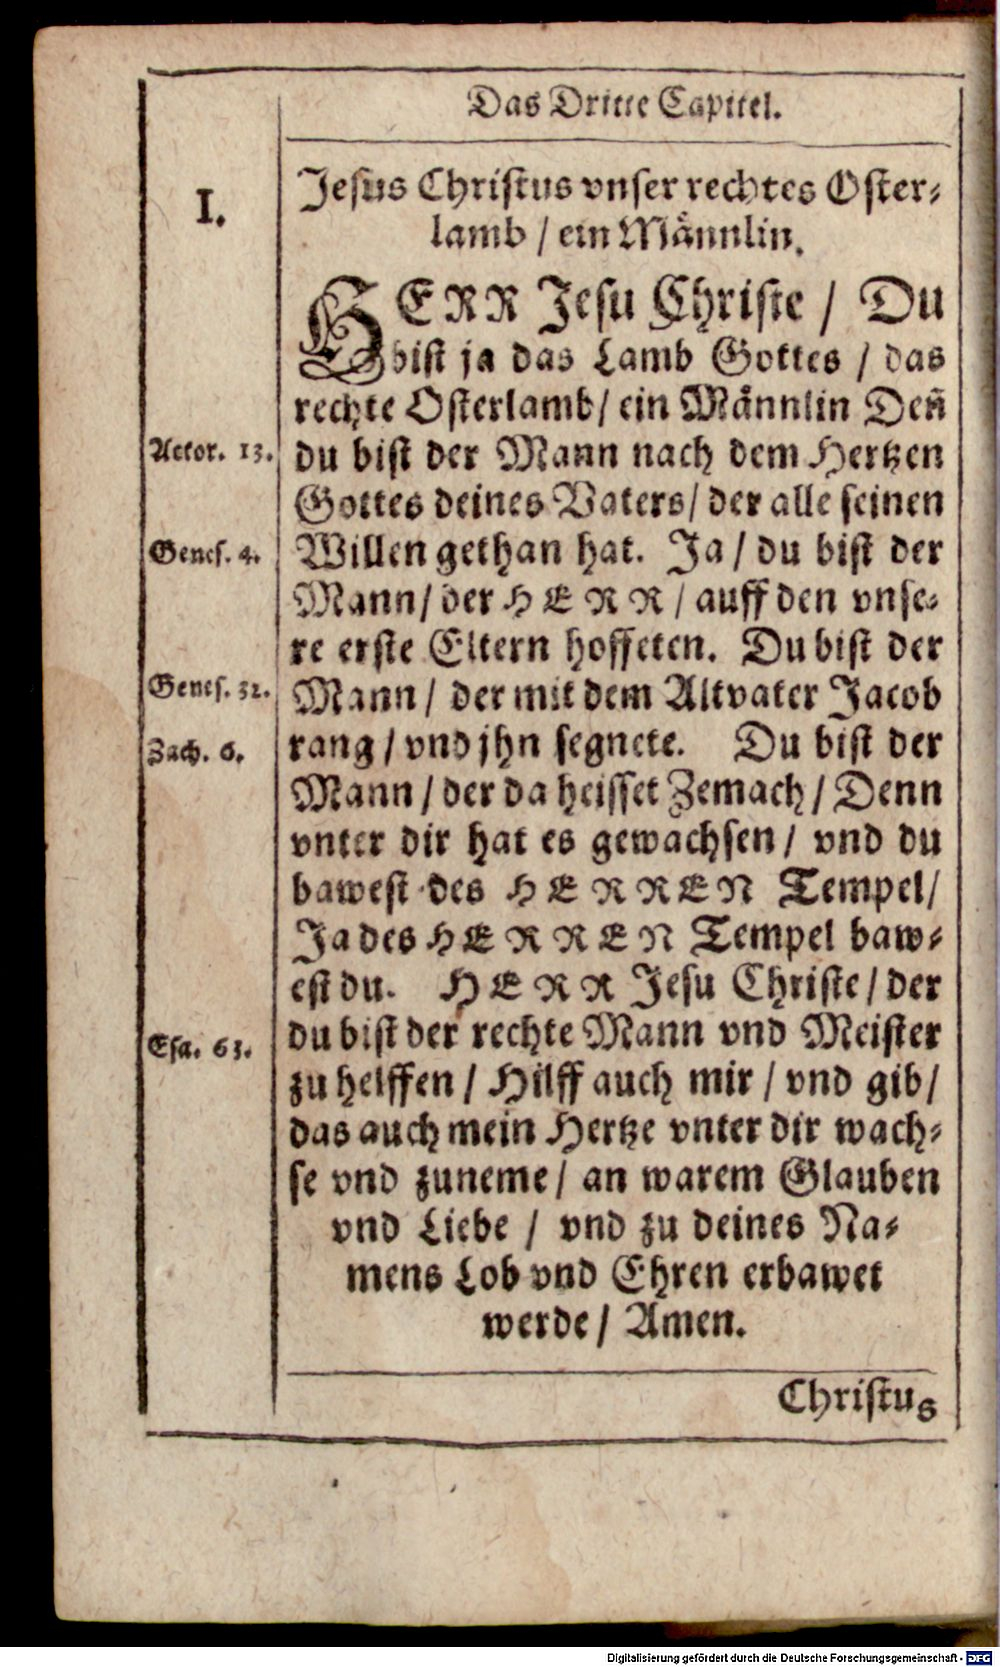 Das Dritte Capitel.
I.
Jesus Christus vnser rechtes Oster-
lamb / ein Männlin.
HERR Jesu Christe / Du
bist ja das Lamb Gottes / das
rechte Osterlamb / ein Männlin Deñ
Actor. 13.
du bist der Mann nach dem Hertzen
Gottes deines Vaters / der alle seinen
Genes. 4.
Willen gethan hat. Ja / du bist der
Mann / der HERR / auff den vnse-
re erste Eltern hoffeten. Du bist der
Genes. 32.
Mann / der mit dem Altvater Jacob
rang / vnd jhn segnete. Du bist der
Zach. 6.
Mann / der da heisset Zemach / Denn
vnter dir hat es gewachsen / vnd du
bawest des HERREN Tempel /
Ja des HERREN Tempel baw-
est du. HERR Jesu Christe / der
Esa. 63.
du bist der rechte Mann vnd Meister
zu helffen / Hilff auch mir / vnd gib /
das auch mein Hertze vnter dir wach-
se vnd zuneme / an warem Glauben
vnd Liebe / vnd zu deines Na-
mens Lob vnd Ehren erbawet
werde / Amen.
Christus
Digitalisierung gefördert durch die Deutsche Forschungsgemeinschaft - DFG